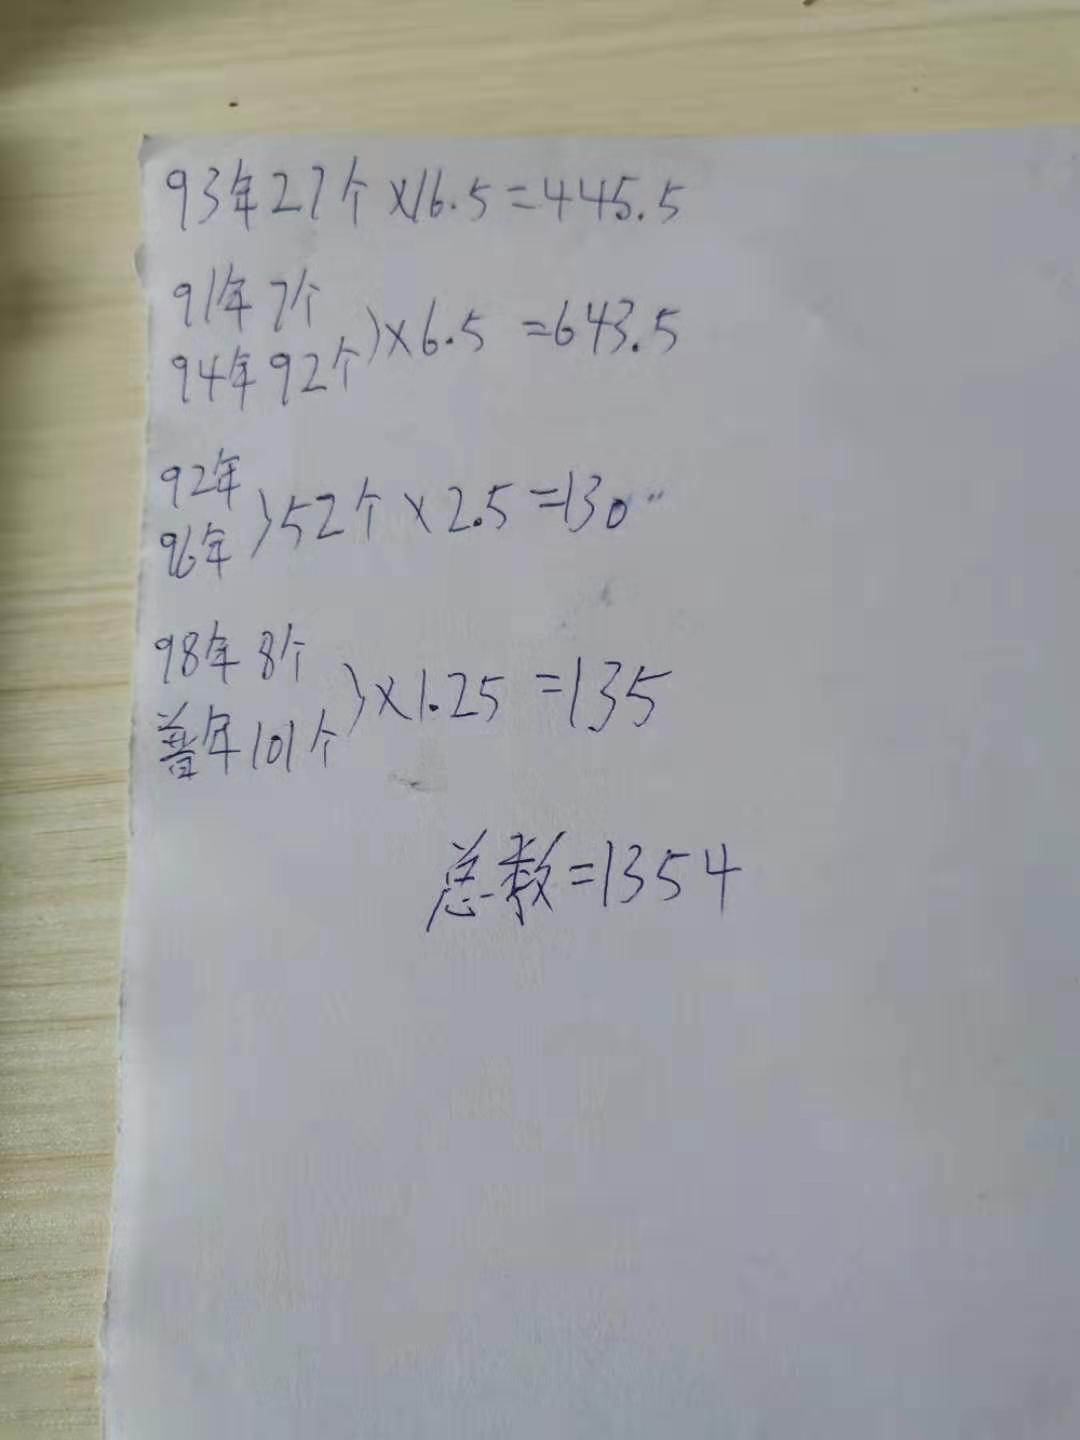 93年27个×16.5=445.5
91年7个
94年92个)×6.5=643.5
92年
96年)52个×2.5=130
98年8个
普年101个)×1.25=135
总数=1354